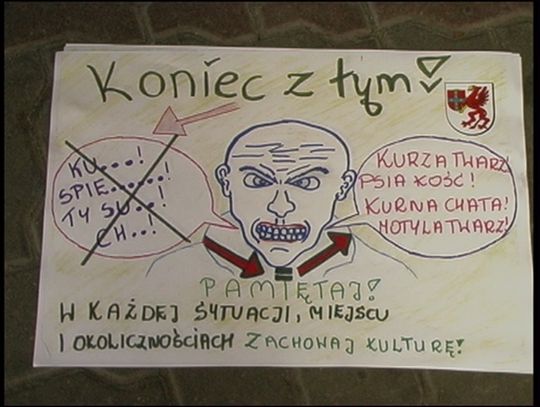 Koniec z tym!
KU...!
SPIE......!
TY SU..!
CH..!
KURZA TWARZ!
PSIA KOŚĆ!
KURNA CHATA!
MOTYLA TWARZ!
=
PAMIĘTAJ!
W KAŻDEJ SYTUACJI, MIEJSCU
I OKOLICZNOŚCIACH ZACHOWAJ KULTURĘ!